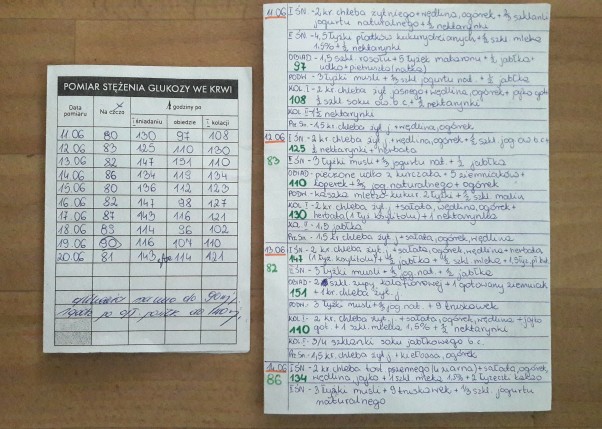 POMIAR STĘŻENIA GLUKOZY WE KRWI
Data pomiaru Na czczo 1 godziny po
I śniadaniu obiedzie I kolacji
11.06 80 130 97 108
12.06 83 125 110 130
13.06 82 147 151 110
14.06 86 134 119 134
15.06 80 136 112 123
16.06 82 147 98 127
17.06 87 143 116 121
18.06 89 114 96 102
19.06 90 116 107 110
20.06 81 143 114 121
11.06 I ŚN - 2 kr. chleba żytniego + wędlina, ogórek + 2/3 szklanki
jogurtu naturalnego + 1/2 nektarynki
II ŚN - 4,5 łyżki płatków kukurydzianych + 1/2 szkl. mleka
1,5% + 1/2 nektarynki
OBIAD - 1,5 szkl. rosołu + 5 łyżek makaronu + 1/2 jabłka +
97 udko + pietruszka (natka)
PODW - 3 łyżki musli + 2/3 szkl. jogurtu nat. + 1/2 jabłka
KOL I - 2 kr. chleba żyt. jasnego + wędlina, ogórek + jajko got.
108 1/2 szkl. soku ow. b.c. + 1/2 nektarynki
KOL II - 1/2 nektarynki
Prz Sn - 1,5 kr. chleba żyt. j + wędlina, ogórek
12.06 I ŚN - 2 kr. chleba żyt. j + wędlina, ogórek + 1/2 szkl. jog. ow b.c +
125 1/2 nektarynki + herbata
83 II ŚN - 3 łyżki musli + 2/3 jogurtu nat + 1/2 jabłka
OBIAD - pieczone udko z kurczaka + 5 ziemniaków +
110 koperek + 2/3 jog. naturalnego + ogórek
PODW - kaszka mleczna + cukier 2 łyżki + 1/2 szkl. malin
KOL I - 2 kr. chleba żyt. j + sałata, wędlina, ogórek +
130 herbata (1 łyż. ksylitolu) + 1 nektarynka
KOL II - 1,5 jabłka
Prz Sn - 1,5 kr. chleba żyt. j + sałata, ogórek, wędlina
13.06 I ŚN - 2 kr. chleba żyt. j + sałata, ogórek, wędlina + herbata
147
82 II ŚN - 3 łyżki musli + 2/3 jog. nat. + 1/2 jabłka
OBIAD - 2 szkl. zupy kalafiorowej + 1 gotowany ziemniak
151 + 1 kr. chleba żyt. j
PODW - 3 łyżki musli + 2/3 jog. nat. + 9 truskawek
KOL I - 2 kr. chleba żyt. j + sałata, ogórek, wędlina + jajko
110 got. + 1 szkl. mleka 1,5% + 1/2 nektarynki
KOL II - 3/4 szklanki soku jabłkowego b.c.
Prz Sn - 1,5 kr. chleba żyt. j + kiełbasa, ogórek
14.06 I ŚN - 2 kr. chleba tost. pszennego (4 ziarna) + sałata, ogórek,
86 134 wędlina, jajko + 1 szkl. mleka 1,5% + 2 łyżeczki kakao
II ŚN - 3 łyżki musli + 9 truskawek + 2/3 szkl. jogurtu
naturalnego